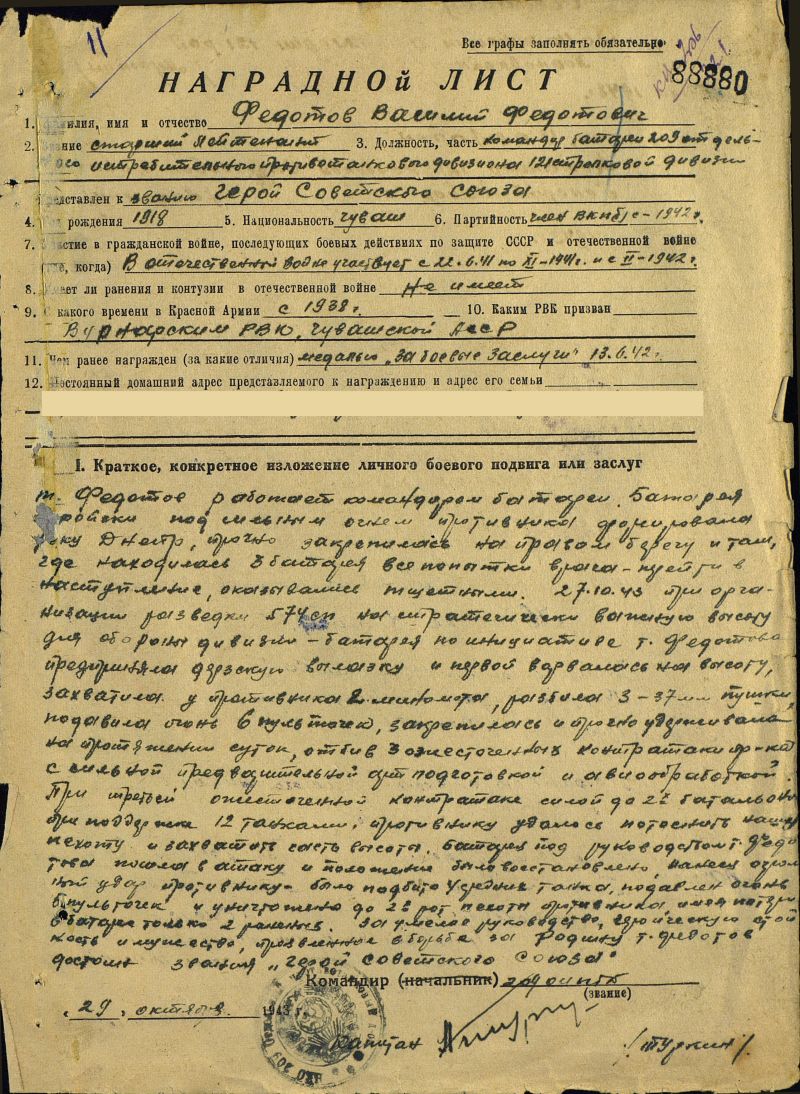 11
Все графы заполнять обязательно
88880
НАГРАДНОЙ ЛИСТ
1. Фамилия, имя и отчество Федотов Василий Федотович
2. Звание старший лейтенант 3. Должность, часть командир батареи 209 отдель-
ного истребительного противотанкового дивизиона 121 стрелковой дивизии
Представлен к званию Герой Советского Союза
4. Год рождения 1918 5. Национальность чуваш 6. Партийность член ВКП(б) с-1942 г.
7. Участие в гражданской войне, последующих боевых действиях по защите СССР и отечественной войне
(где, когда) В отечественной войне участвует с 22.6.41 по XI-1941 г. и с II-1942 г.
8. Имеет ли ранения и контузии в отечественной войне не имеет
9. С какого времени в Красной Армии с 1938 г. 10. Каким РВК призван
Вурнарским РВК, Чувашской АССР
11. Чем ранее награжден (за какие отличия) медалью „За боевые заслуги" 13.6.42 г.
12. Постоянный домашний адрес представляемого к награждению и адрес его семьи
I. Краткое, конкретное изложение личного боевого подвига или заслуг
т. Федотов работает командиром батареи. Батарея
под сильным огнем противника форсировала
реку Днепр, прочно закрепилась на правом берегу и там,
где находилась 3 батарея все попытки врага - пойти в
наступление, оказывались тщетными. 27.10.43 при орга-
низации разведки 574 сп на стратегически важную высоту
для обороны дивизии - батарея по инициативе т. Федотова
предприняла дерзскую вылазку и первой ворвалась на высоту,
захватила у противника 2 миномета, разбила 3-37мм пушки,
подавила огонь 6 пульточек, закрепилась и прочно удерживала
на протяжении суток, отбив 3 ожесточенных контратаки пр-ка
с сильной предварительной артподготовкой и авиообработкой.
При третьей ожесточенной контратаке силой до 2х батальонов
при поддержке 12 танками, противнику удалось потеснить нашу
пехоту и захватить часть высоты. Батарея под руководством т. Федо-
това пошла в атаку и положение было восстановлено, нанеся
удар противнику - было подбито 4 средних танка, подавлен огонь
6 пульточек и уничтожено до 2х рот пехоты противника имея потери
в батарее только 2 раненых. За умелое руководство, героическую стой
кость и мужество, проявленное в борьбе за Родину т. Федотов
достоин звания „Герой Советского Союза"
Командир (начальник) 209 оиптд
(звание)
„29" октября 1943 г.
Капитан /Туркин/